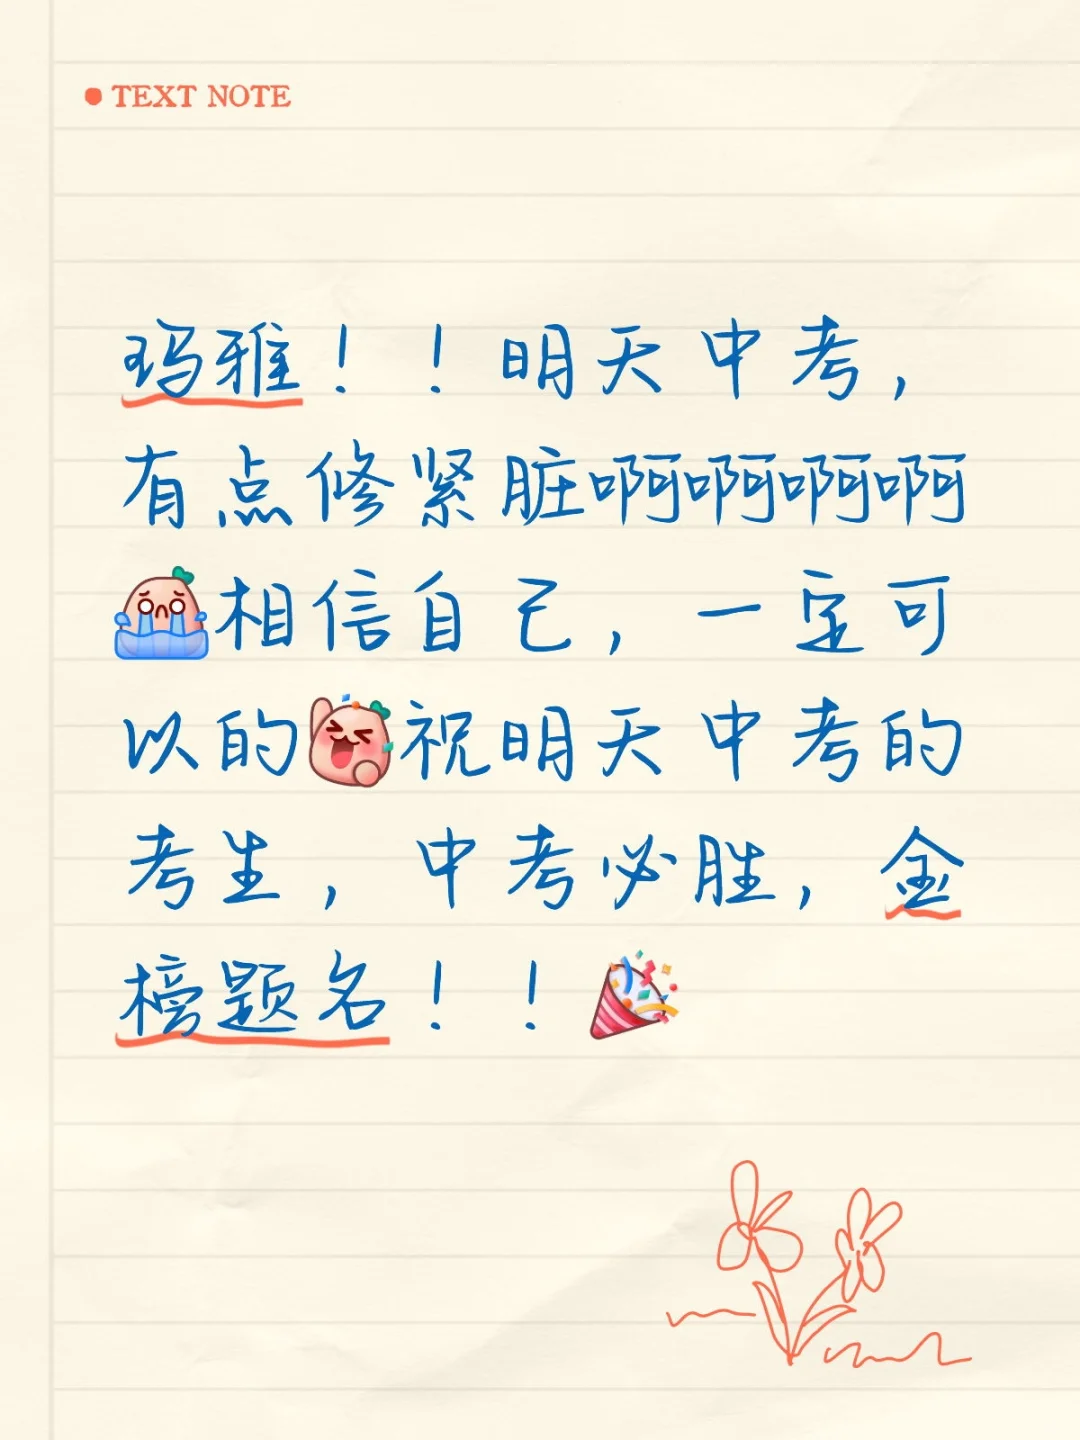 TEXT NOTE
玛雅！！明天中考，
有点修紧脏啊啊啊啊
相信自己，一定可
以的祝明天中考的
考生，中考必胜，金
榜题名！！